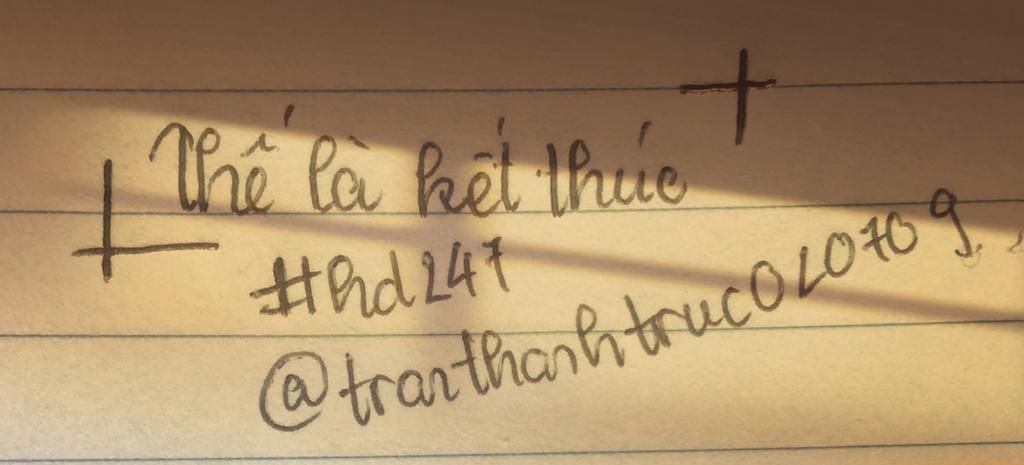 Thế là kết thúc
#hd247
@tranthanhtruc020709